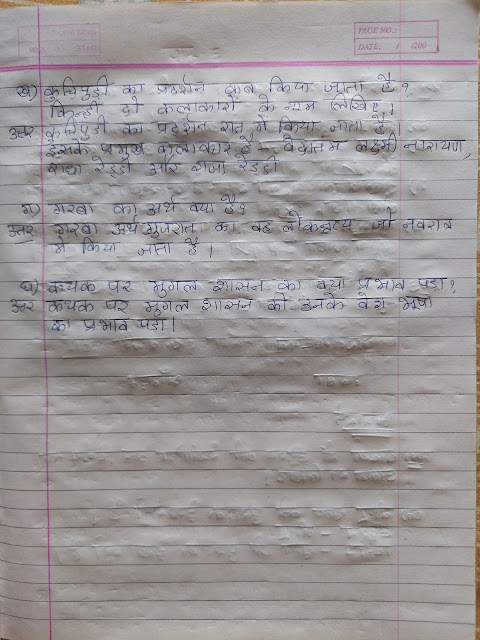 PAGE NO.:
DATE: / /200
ख) कुचिपुडी का प्रदर्शन कब किया जाता है?
किन्ही दो कलाकारो के नाम लिखिए।
उत्तर कुचिपुडी का प्रदर्शन रात् में किया जाता है।
इसके प्रमुख कलाकार है – वेदातम लक्ष्मी नारायण,
राधा रेड्डी और राजा रेड्डी
ग) गरबा का अर्थ क्या है?
उत्तर गरबा अर्थ गुजरात का वह लोकनृत्य जो नवरात्र
मे किया जाता है।
घ) कथक पर मुगल शासन का क्या प्रभाव पडा?
उत्तर कथक पर मुगल शासन की उनके वेश भूषा
का प्रभाव पडा।